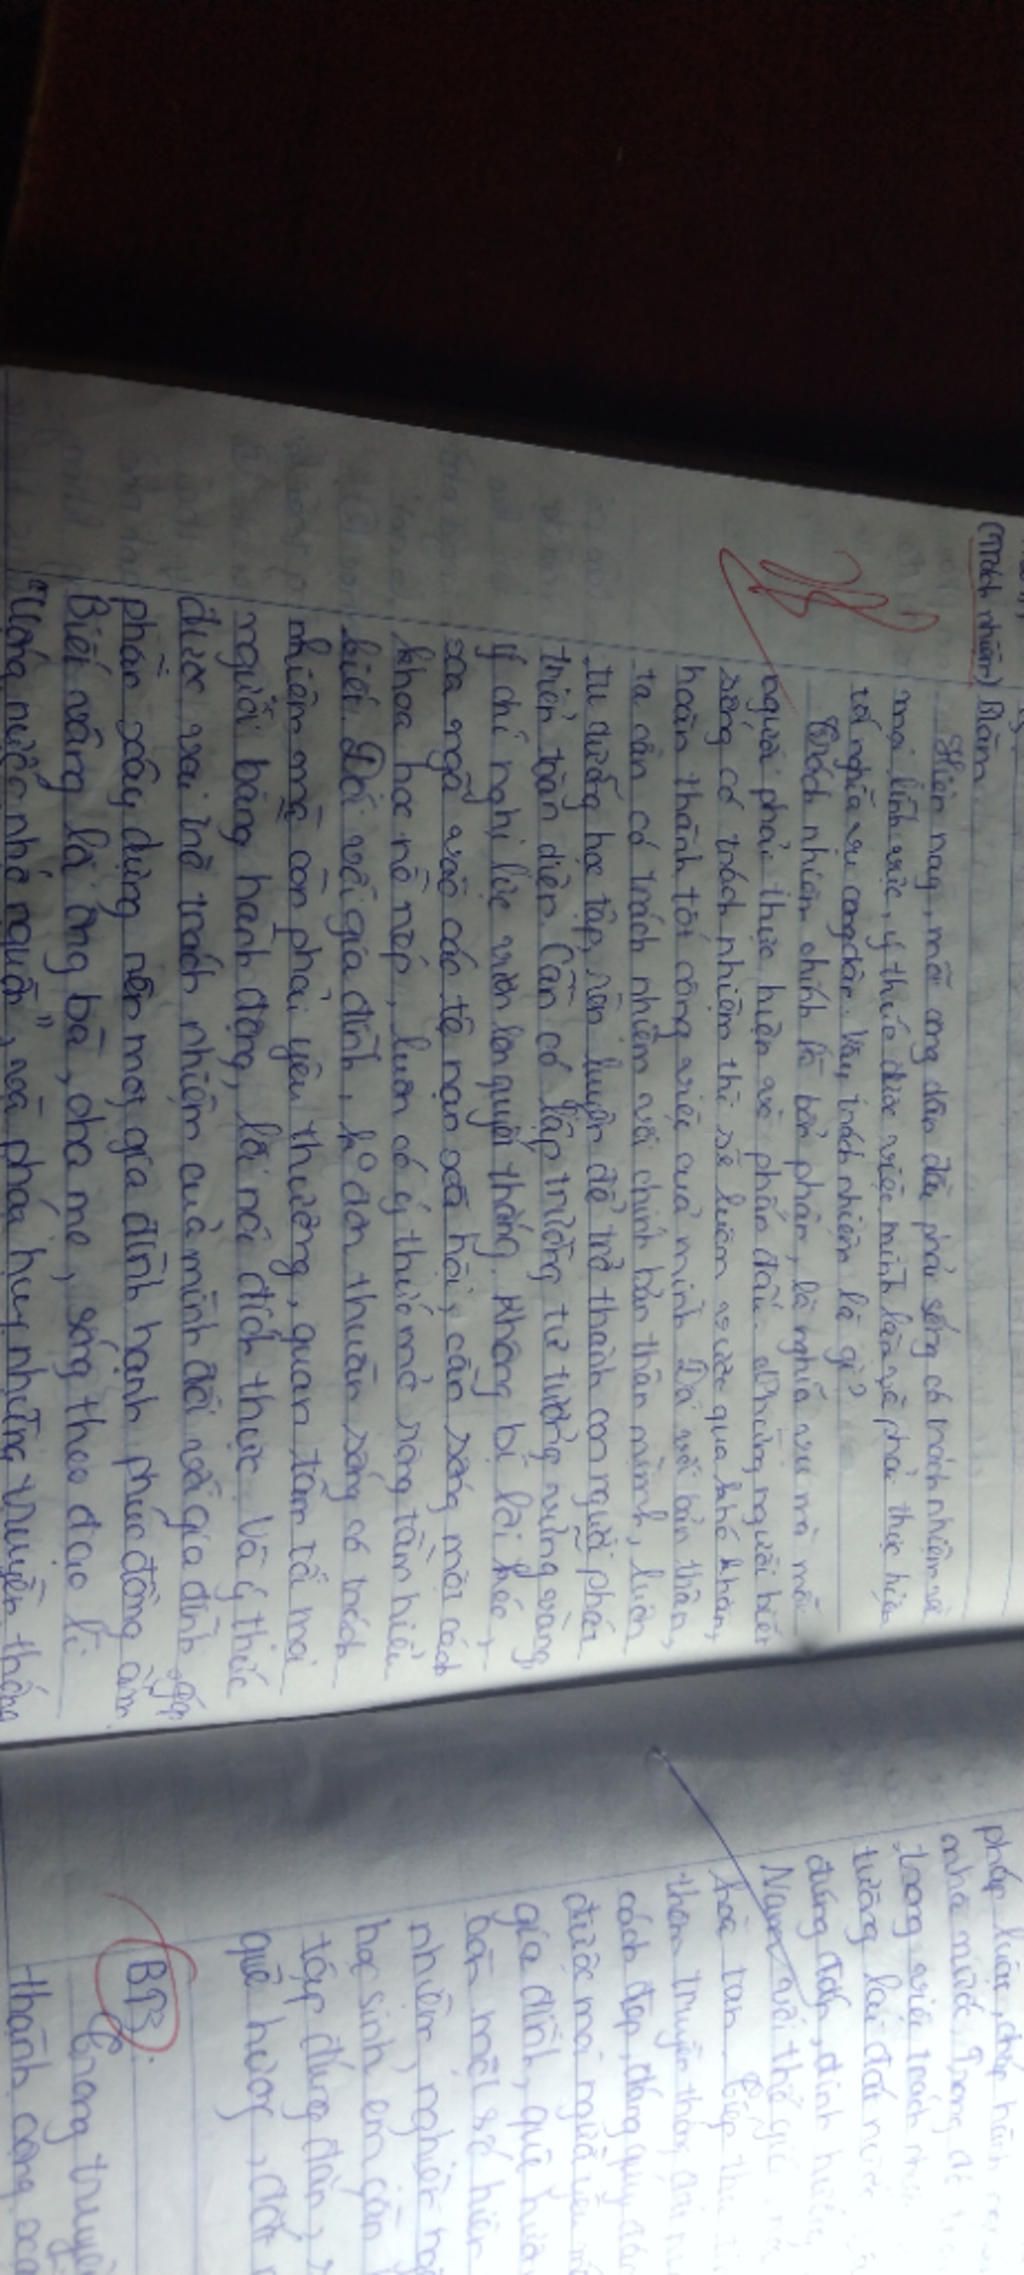 (Trách nhiệm) Bàn
Hiện nay, mỗi công dân đều phải sống có trách nhiệm về
mọi lĩnh vực, ý thức được việc mình làm và phải thực hiện
tốt nghĩa vụ công dân. Vậy, trách nhiệm là gì?
Trách nhiệm chính là bổn phận, là nghĩa vụ mà mỗi
người phải thực hiện và phấn đấu. Những người biết
sống có trách nhiệm thì sẽ luôn vượt qua khó khăn,
hoàn thành tốt công việc của mình. Đối với bản thân,
ta cần có trách nhiệm với chính bản thân mình, luôn
tu dưỡng học tập, rèn luyện để trở thành con người phát
triển toàn diện. Cần có lập trường tư tưởng vững vàng,
ý chí nghị lực vươn lên quyết thắng. Không bị lôi kéo,
sa ngã vào các tệ nạn xã hội, cần sống một cách
khoa học nề nếp, luôn có ý thức mở rộng tầm hiểu
biết. Đối với gia đình, k° đơn thuần sống có trách
nhiệm mà còn phải yêu thương, quan tâm tới mọi
người bằng hành động, lời nói đích thực. Và ý thức
được vai trò trách nhiệm của mình đối với gia đình, góp
phần xây dựng nên một gia đình hạnh phúc đầm ấm.
Biết vâng lời ông bà, cha mẹ, sống theo đạo lí
"Uống nước nhớ nguồn", và phát huy những truyền thống
pháp luật, chấp hành
nhà nước. Trong
trong việc trách
tương lai đất nước
đúng đắn, định hướng
Nam với thế giới
hòa tan. Tiếp thu
thêm truyền thống
cách đẹp, đáng quý
được mọi người yêu
gia đình, quê hương
bên một số hiện
nhiệm,
học sinh, em cần
tập đúng đắn,
quê hương, đất
BPB.
Trong truyện
thành công